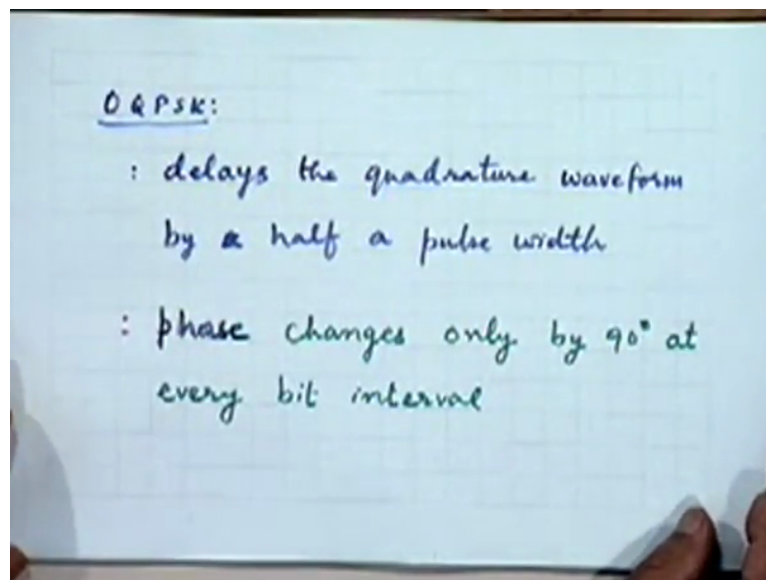 OQPSK:
: delays the quadrature waveform
by a half a pulse width
: phase changes only by 90° at
every bit interval